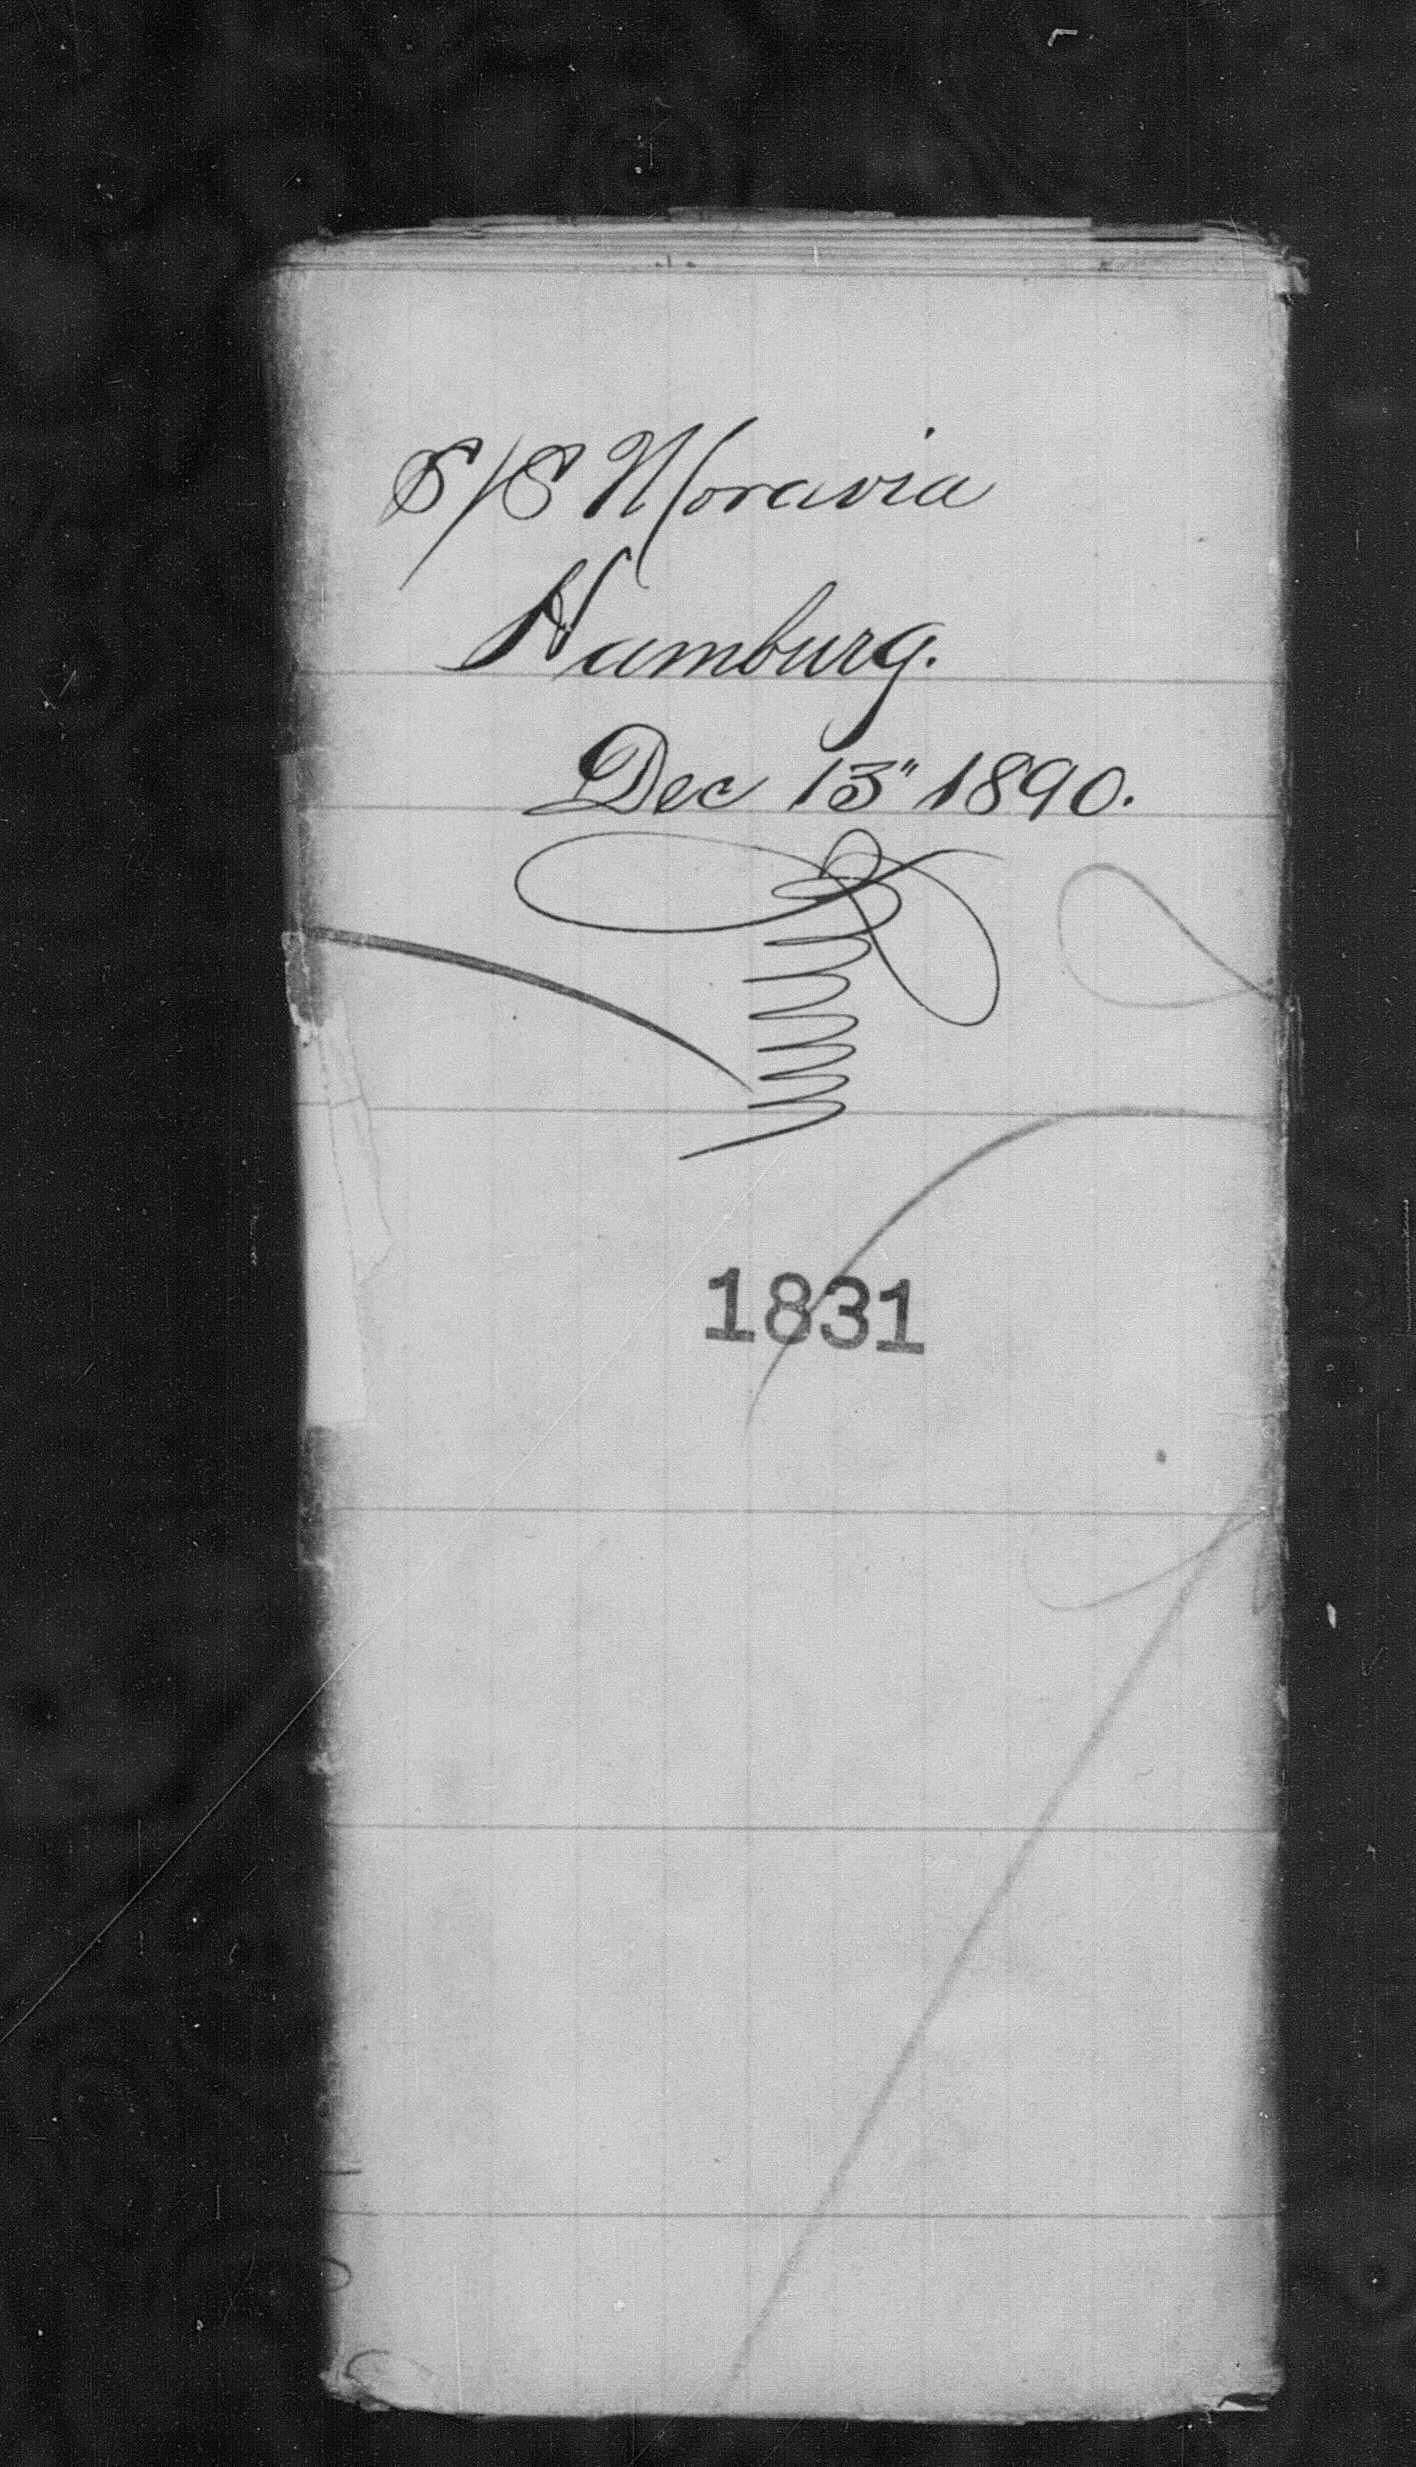 S/S Moravia
Hamburg.
Dec 13" 1890.
1831